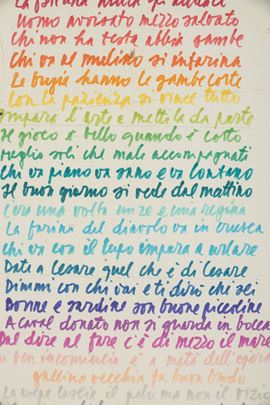 La fortuna aiuta gli audaci
Uomo avvisato mezzo salvato
Chi non ha testa abbia gambe
Chi va al mulino si infarina
Le bugie hanno le gambe corte
Con la pazienza si vince tutto
impara l'arte e mettila da parte
Il gioco è bello quando è corto
meglio soli che male accompagnati
Chi va piano va sano e va lontano
Il buon giorno si vede dal mattino
C'era una volta un re e una regina
La farina del diavolo va in crusca
Chi va con il lupo impara a urlare
Date a Cesare quel che è di Cesare
Dimmi con chi vai e ti dirò chi sei
Donne e sardine son buone piccoline
A caval donato non si guarda in bocca
dal dire al fare c'è di mezzo il mare
chi ben incomincia è a metà dell'opera
gallina vecchia fa buon brodo
La volpe perde il pelo ma non il vizio